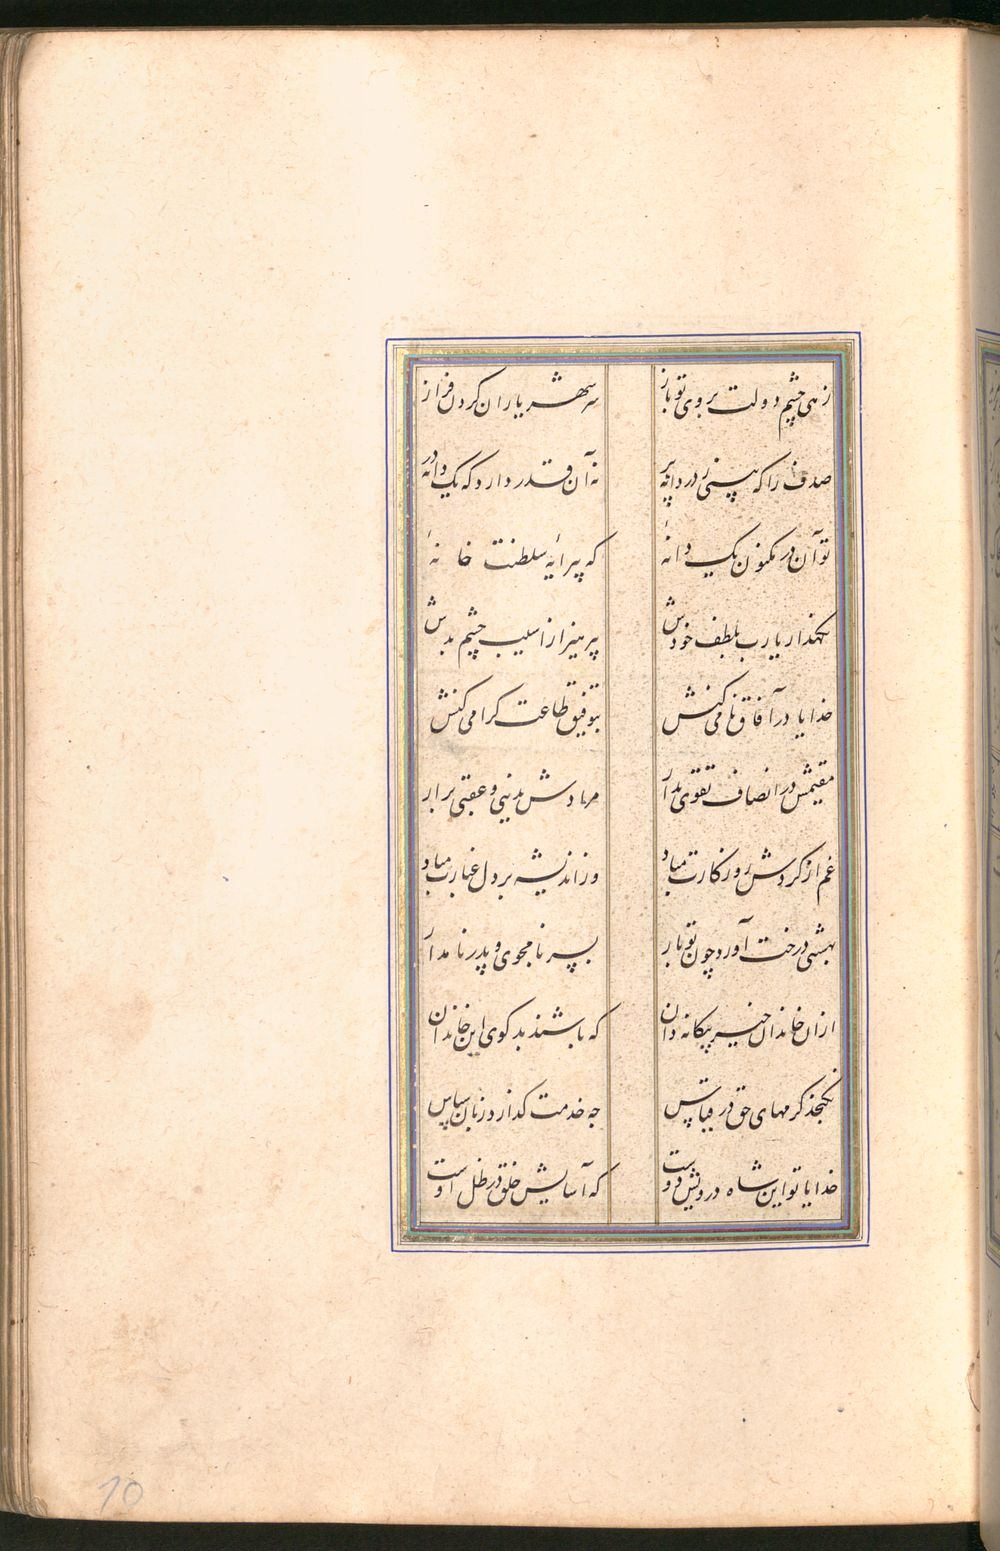 زهی چشم دولت بروی تو باز
سر شهریاران کردن فراز
صدف را که بینی ز در دانه پر
نه آن قدر دارد که یک دانه در
تو آن در مکنون یک دانهٔ
که پیرایهٔ سلطنت خانهٔ
نکهدار یارب بلطف خودش
بپرهیز از اسیب چشم بدش
خدایا در آفاق نامی کنش
بتوفیق طاعت کرامی کنش
مقیمش در انصاف تقوی بدار
مرادش بدنیی و عقبی برار
غم از کردش روزکارت مباد
وز اندیشه بر دل غبارت مباد
بهشتی درخت آورد چون تو بار
پسر نامجوی و پدر نامدار
ازان خاندان خیر بیکانه دان
که باشند بدکوی این خاندان
نکنجد کرمهای حق در قیاس
چه خدمت کذارد زبان سپاس
خدایا تو این شاه درویش دوست
که آسایش خلق در ظل اوست
10